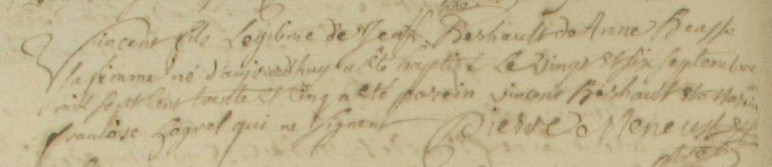 Vincent fils Legitime de Jean Reshault & Anne
sa femme né d'aujourd'huy a été baptisé Le vingt et six Septembre
mil sept cens trente et cinq a été parein vincent Reshault et la
francoise Logrol qui ne signent Pierre